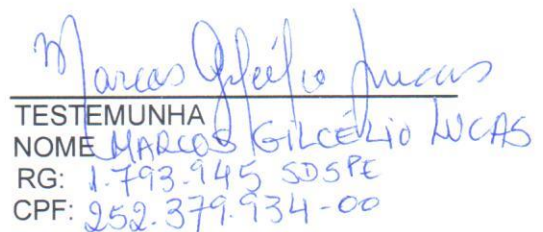 Marcos Gilcélio Lucas
TESTEMUNHA
NOME MARCOS GILCÉLIO LUCAS
RG: 1.793.945 SDSPE
CPF: 252.379.934-00